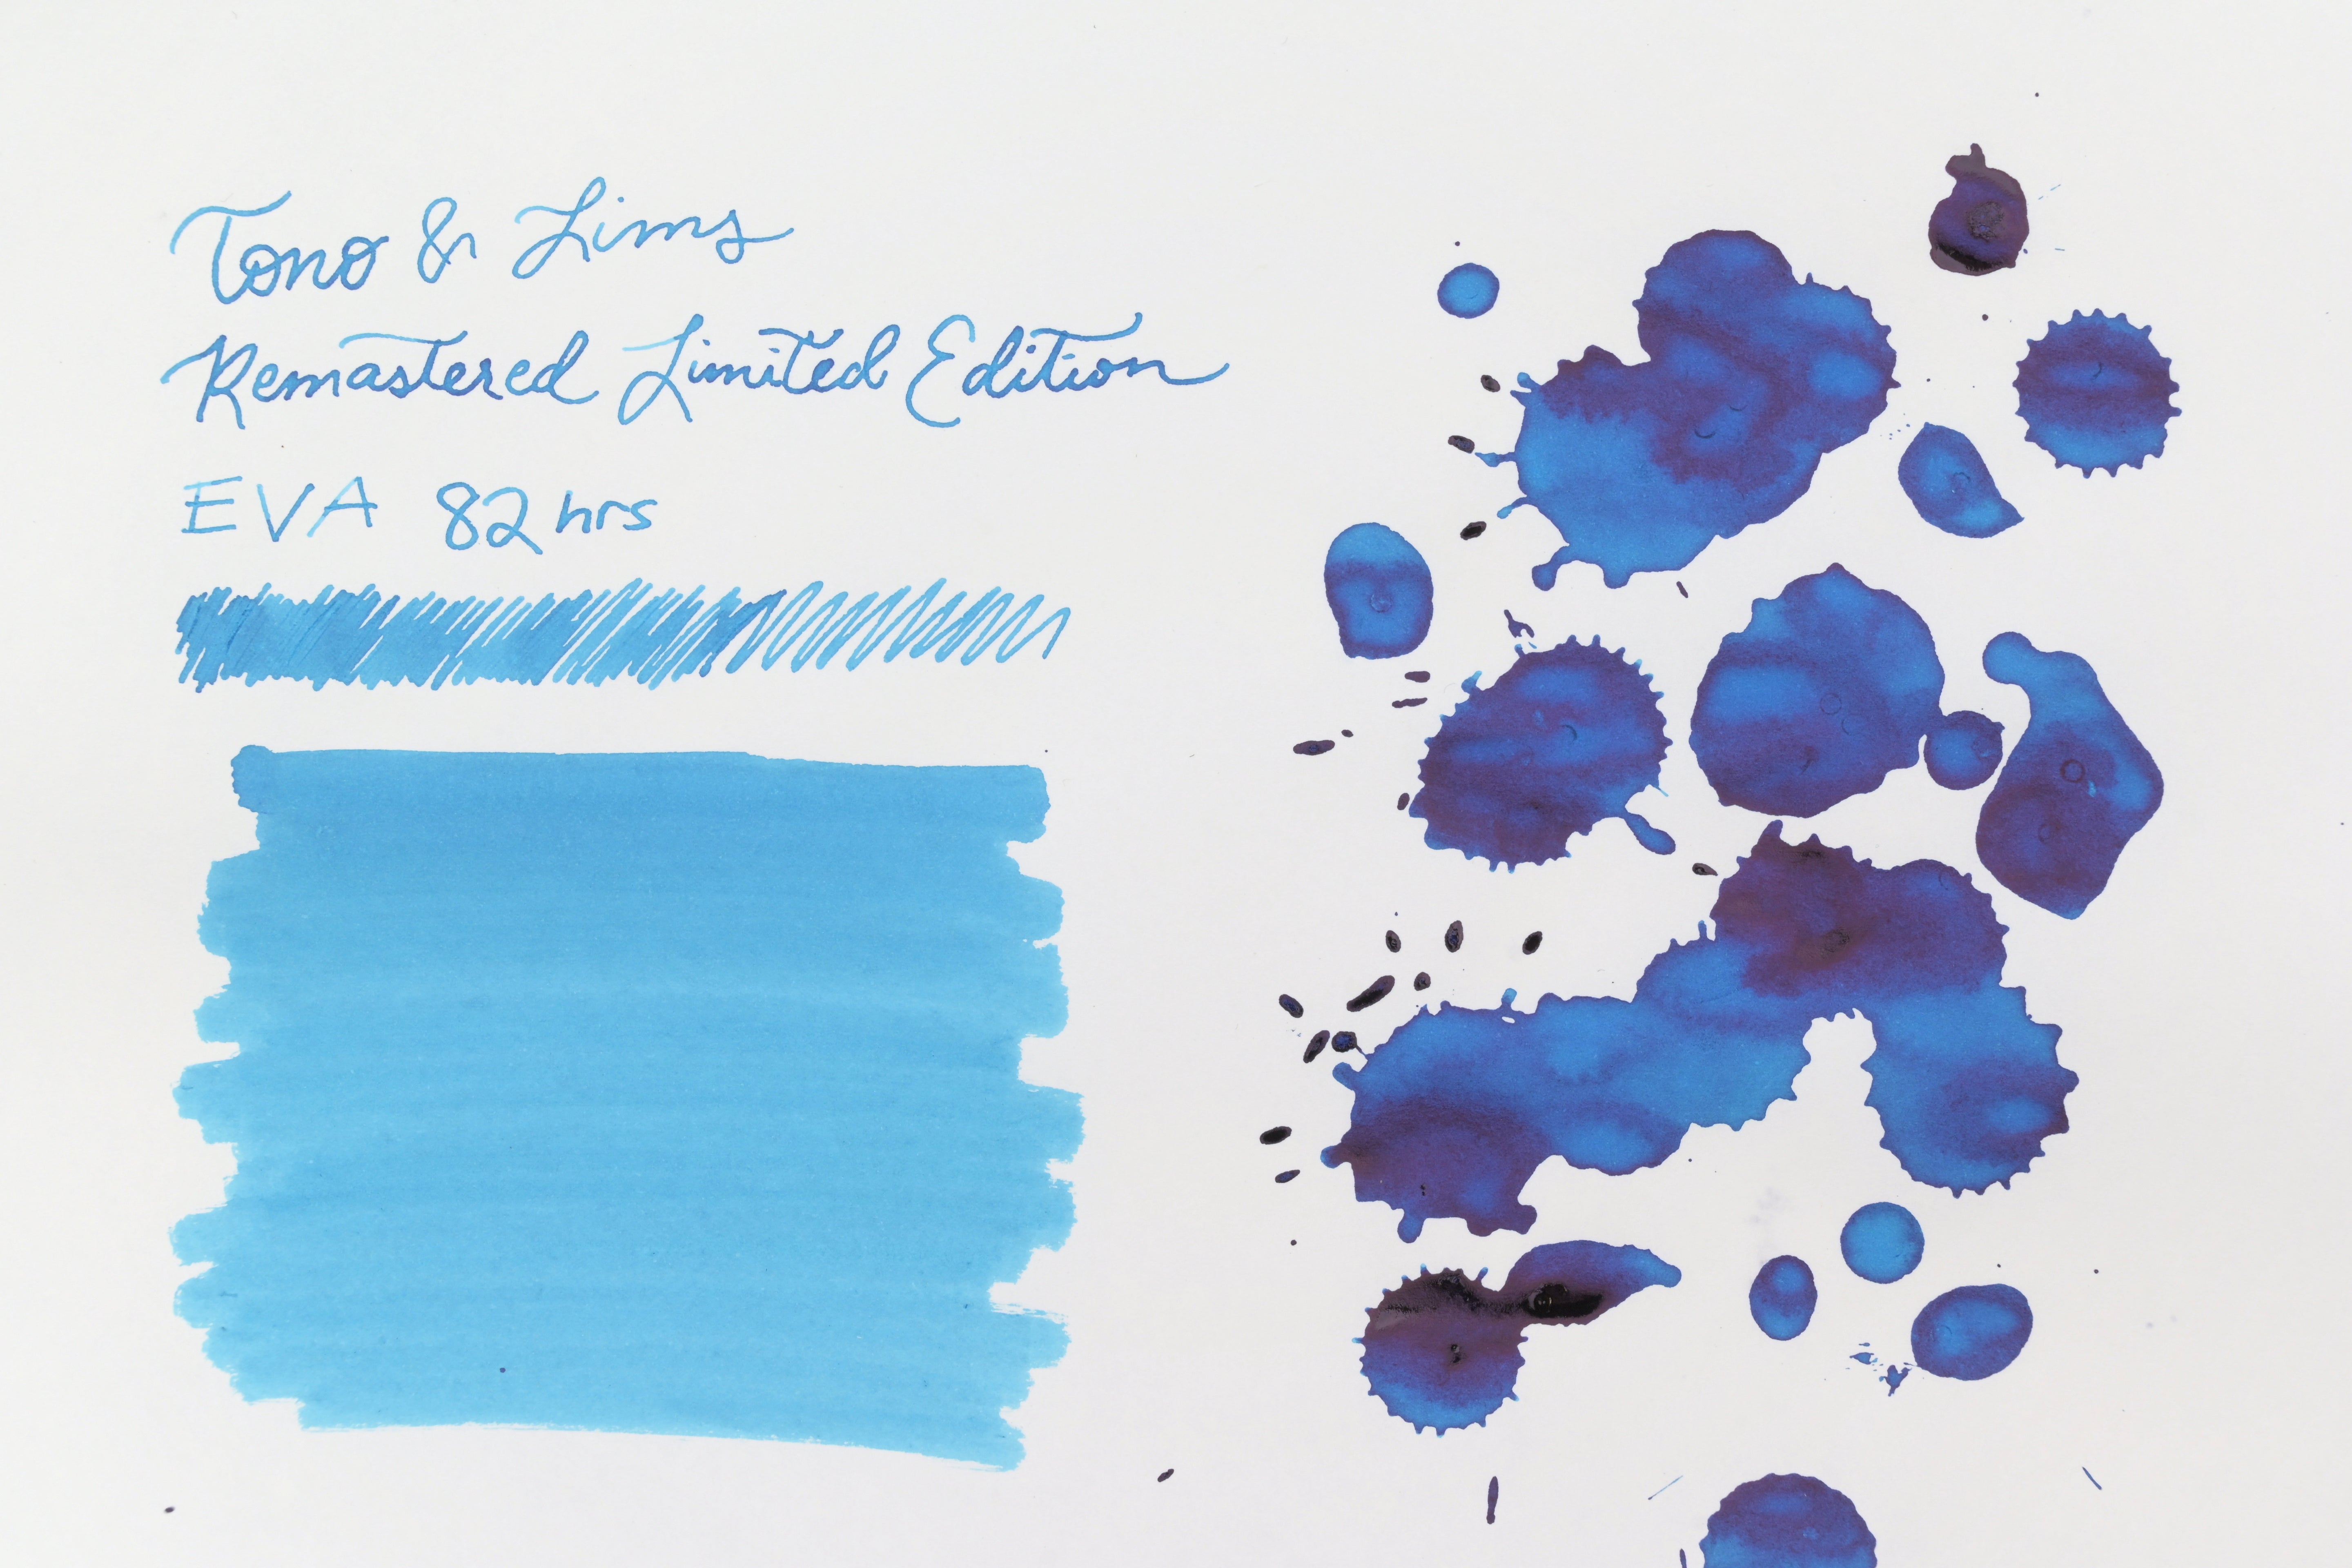 Tono & Lims
Remastered Limited Edition
EVA 82 hrs